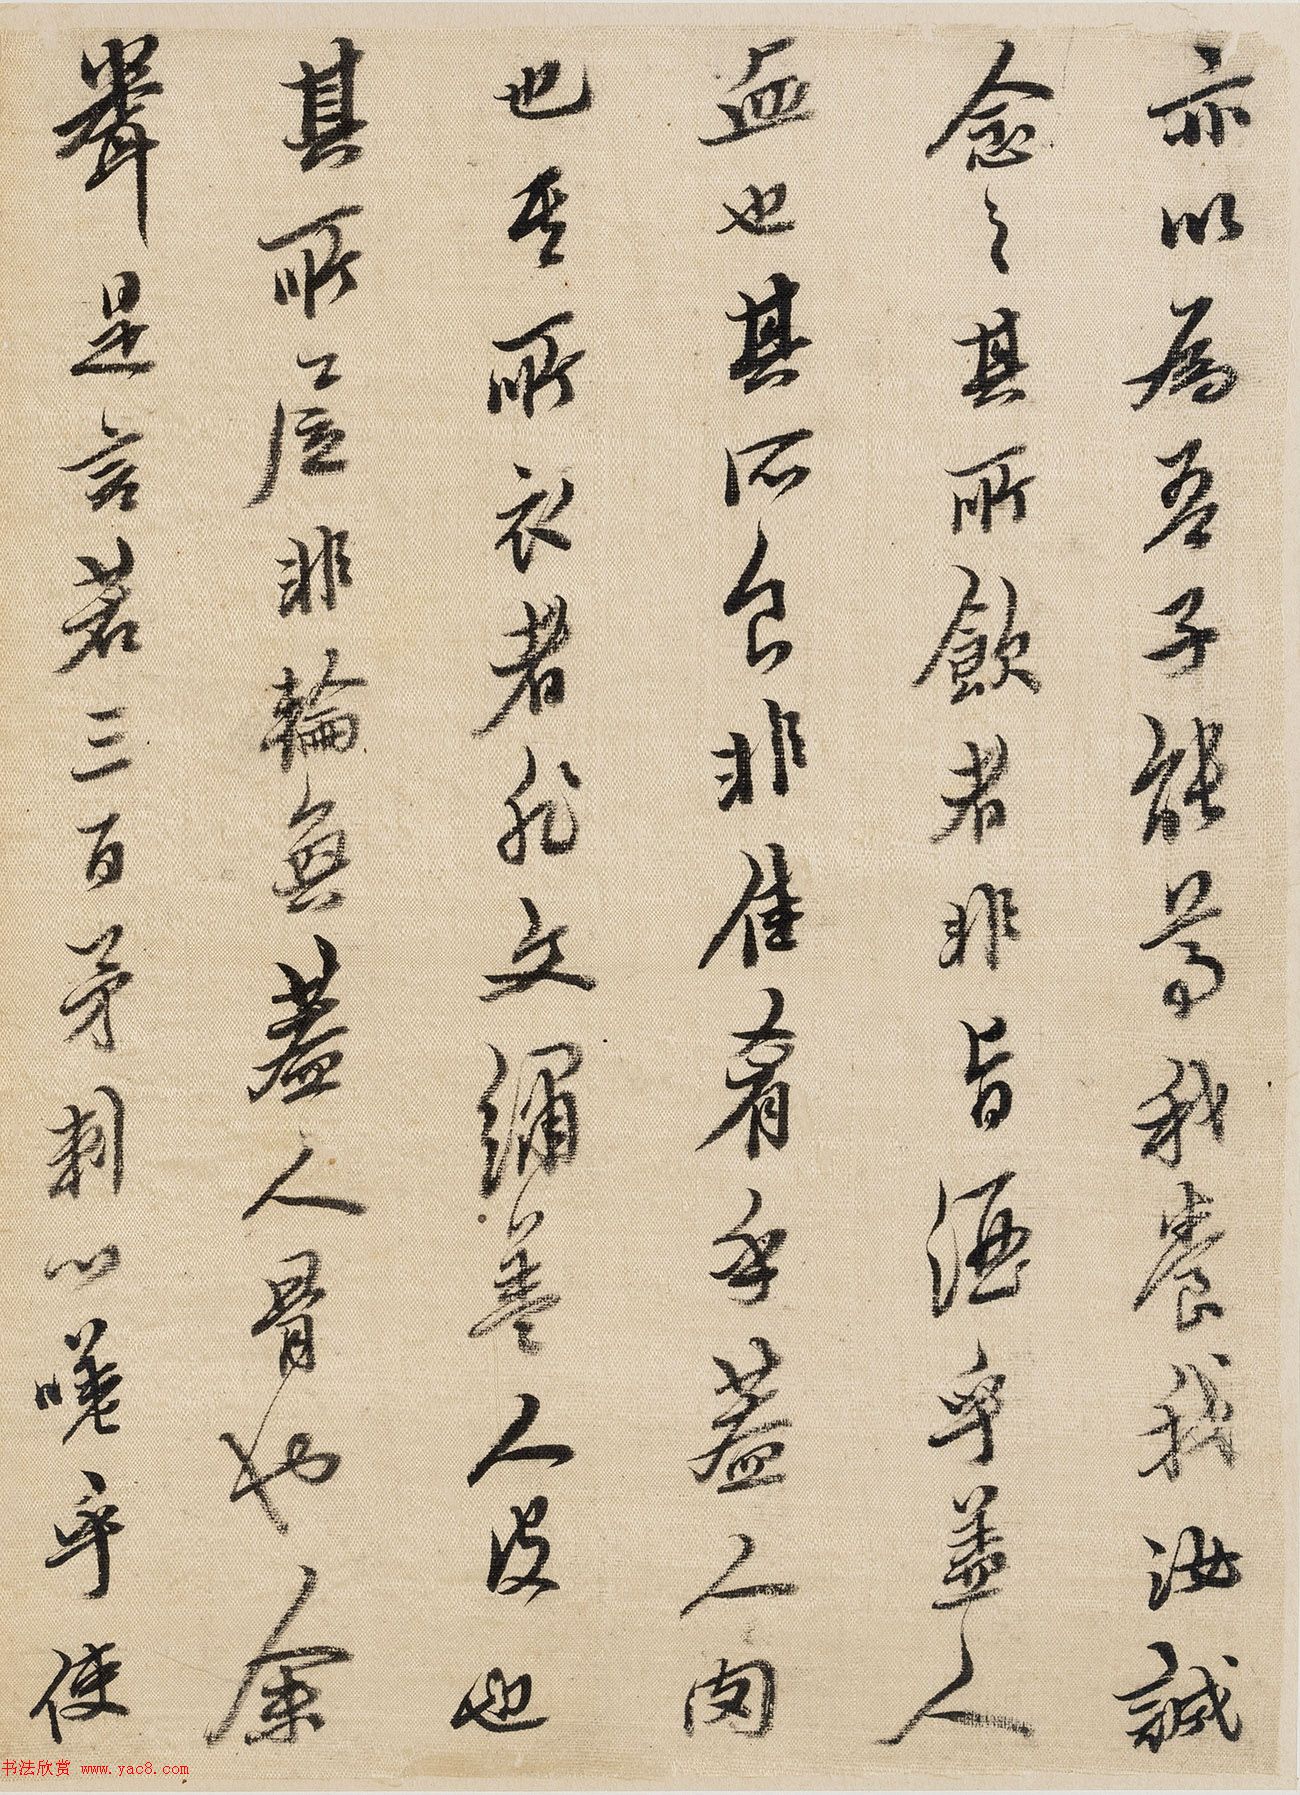 亦以為吾子能尊我養我汝誠
念之其所飲者非旨酒乎蓋人
血也其所食非佳肴乎蓋人肉
也其所衣者非文繡蓋人皮也
其所居非輪奐蓋人骨也余
聾是言若三百茅刺心嗟乎使
书法欣赏 www.yac8.com